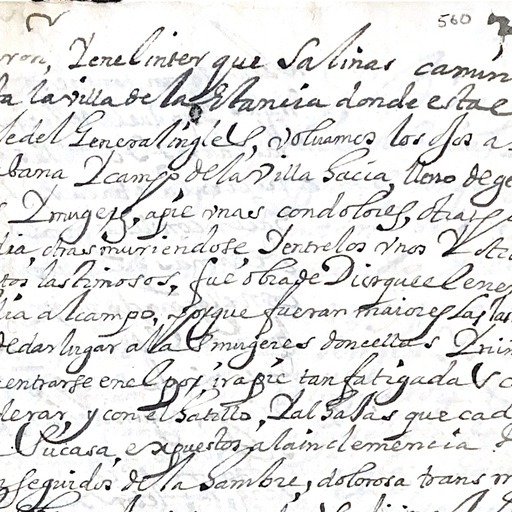 560
rron, Y en el inter que Salinas camin
ta la villa de la Estancia donde esta e
le del General ingles, volvamos los ojos a
bana Y campo de la villa hacia, lleno de ge
s Y mugeres, a pie unas con dolores, otras
dia, otras muriendose, Y entre los unos Y otro
tos lastimosos, fue obra de Dios que el ene
lia al campo, porque fueran maiores las las
de dar lugar a las mugeres doncellas Y niñ
entrarse en el por ir a pie tan fatigadas
lerar, y con el hatillo, Y alhajas que cad
su casa, expuestos a la inclemencia
nseguidos de la hambre, dolorosa transm